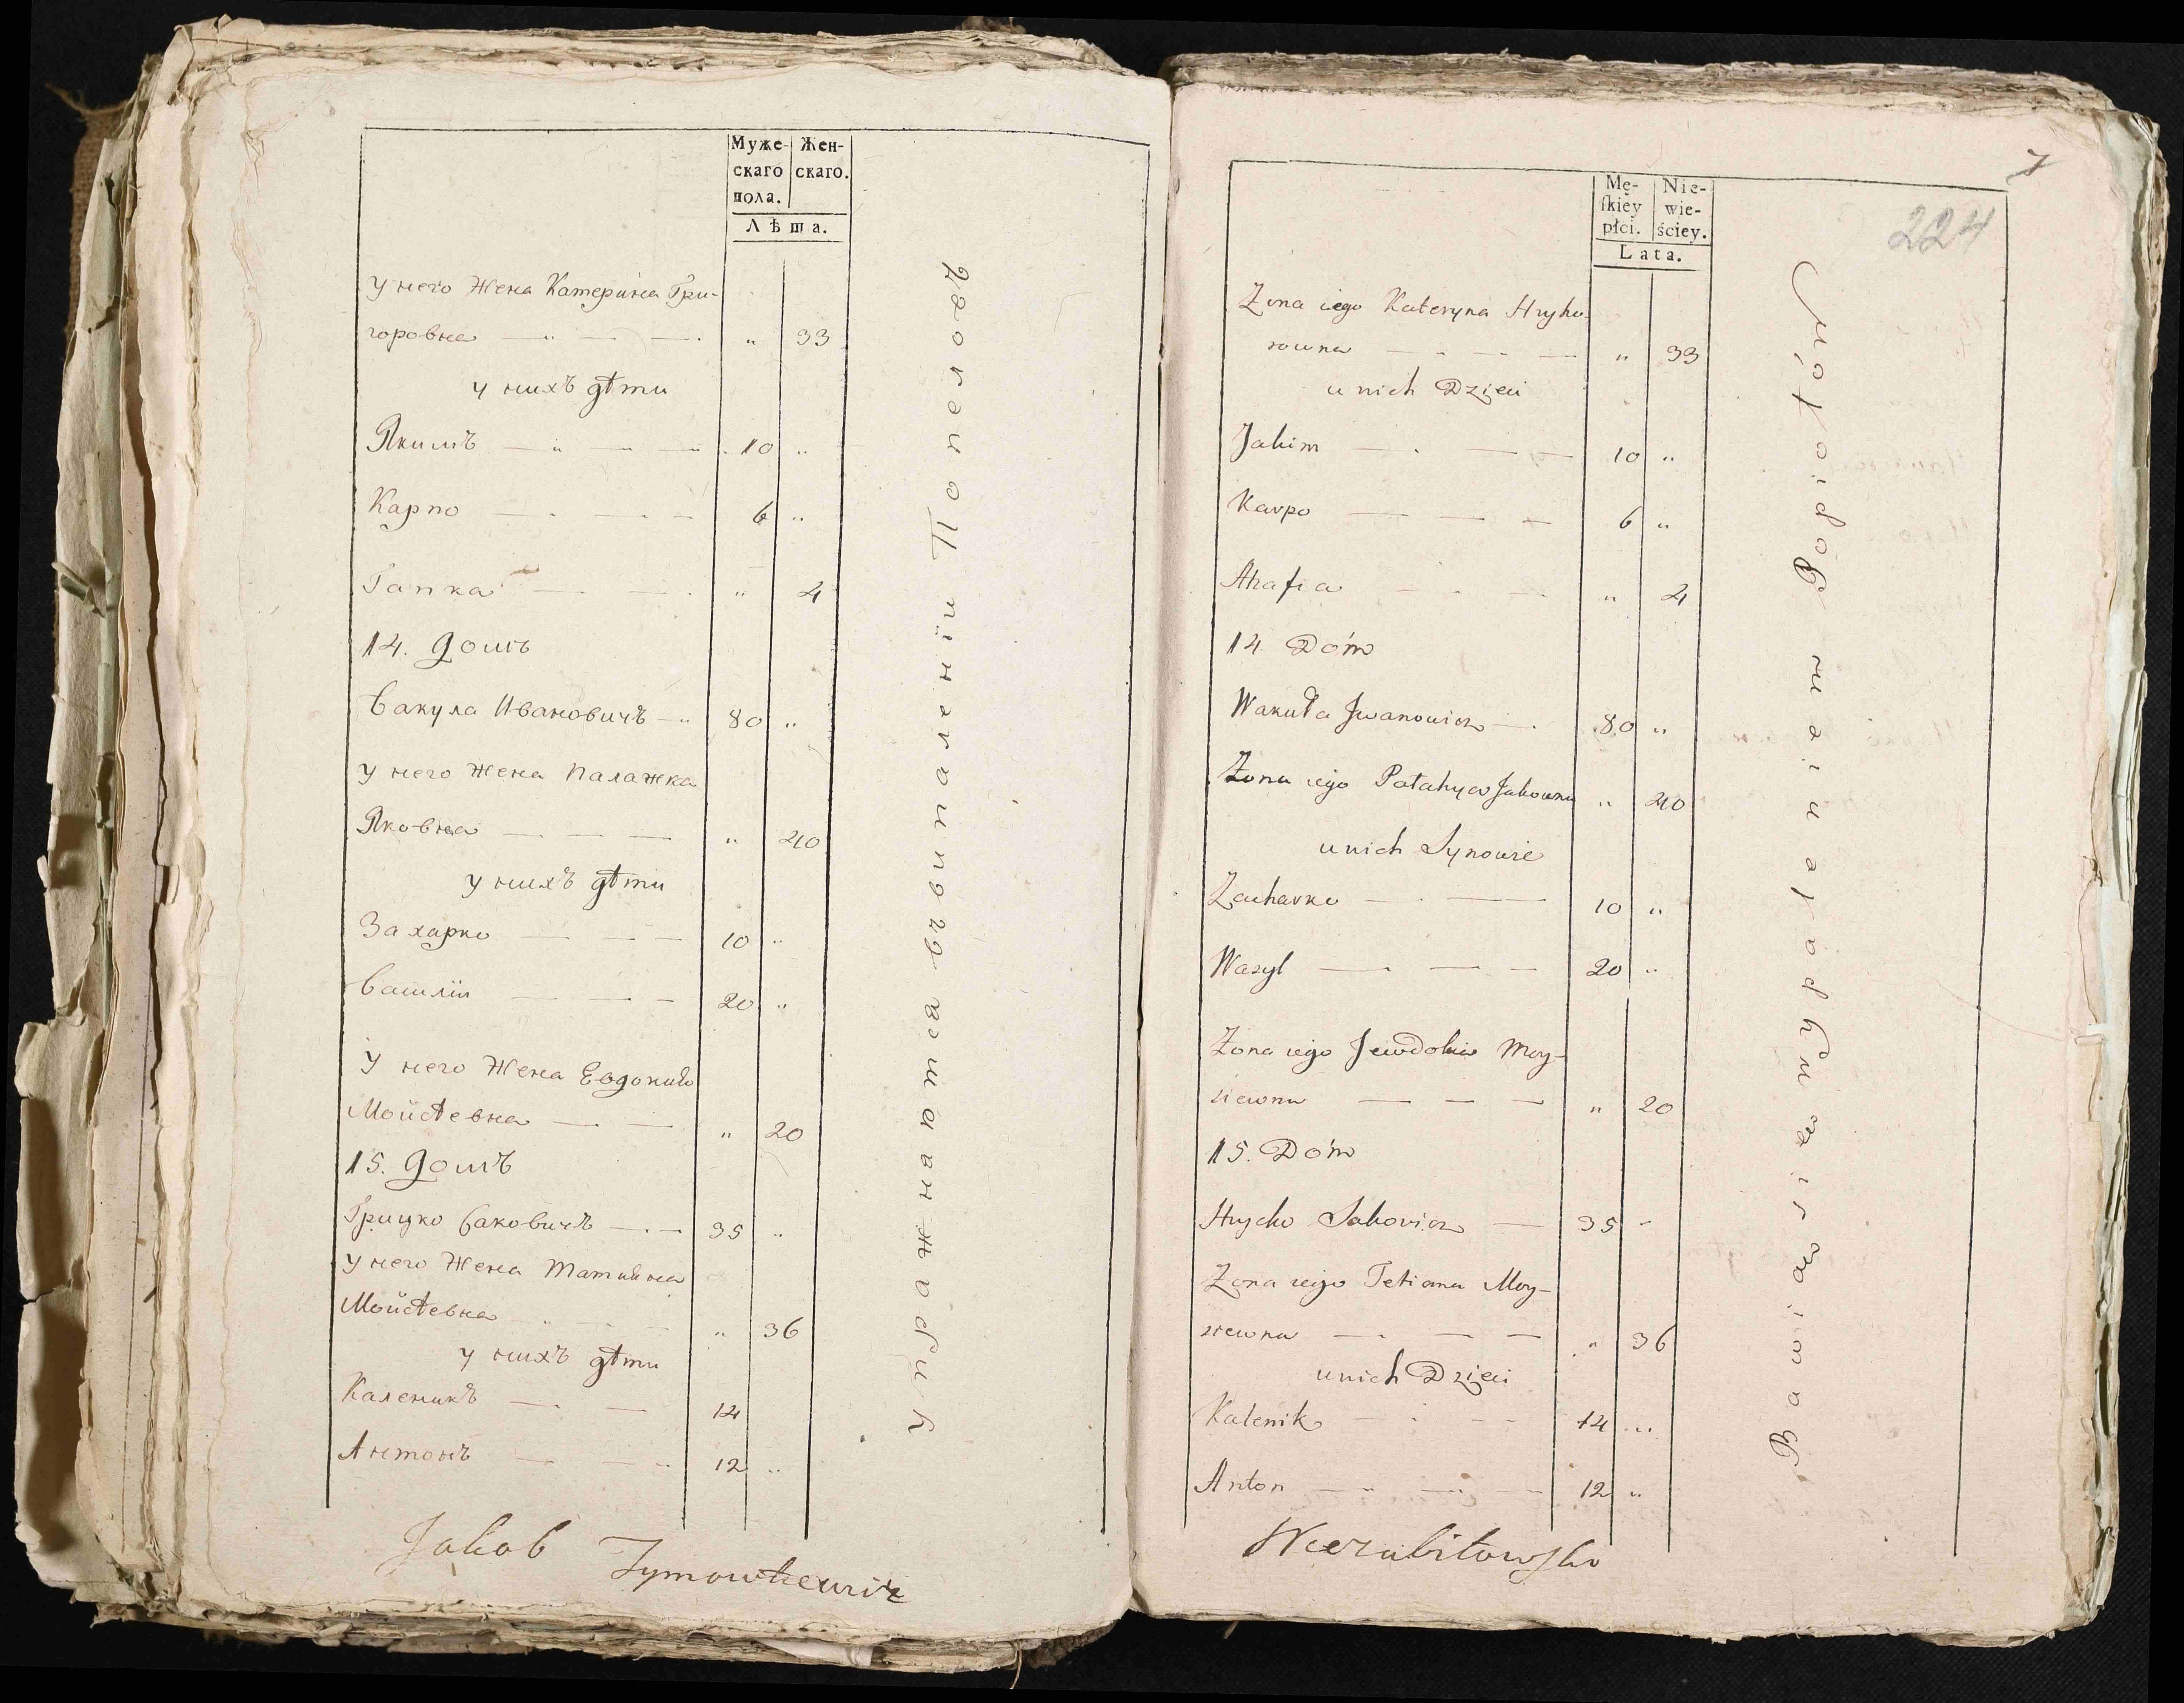 Муже-
скаго
пола.
Жен-
скаго.
Лѣта.
У него Жена Катерина Гри-
горовна — " — — " 33
у нихъ дѣти
Якимъ — " — — 10 "
Карпо — — — 6 "
Гапка — — " 4
14. Домъ
Вакула Ивановичъ — " 80 "
У него Жена Палажка
Яковна — — — " 40
у нихъ дѣти
Захарко — — — 10 "
Василій — — — 20 "
У него Жена Евдокия
Мойсѣевна — — " 20
15. Домъ
Грицко Саковичъ — — 35 "
У него Жена Татияна
Мойсѣевна " — — " 36
у нихъ дѣти
Каленикъ — — 14
Антонъ — — 12 "
упражнаютса въвипаленіи Попелов
Jakob Zymowtiewicz
7
224
Mę-
ſkiey
płci.
Nie-
wie-
ściey.
Lata.
Zona iego Kateryna Hryho-
rowna — — — " 33
u nich Dzieci
Jakim — — — 10 "
Karpo — — — 6 "
Ahafia — — — " 4
14. Dóm
Wakuła Jwanowicz — 80 "
Żona iego Pałahya Jakowna " 40
u nich Synowie
Zacharko — — 10 "
Wasyl — — — 20 "
Żona iego Jewdokia Moy-
siewna — — — " 20
15. Dóm
Hrycko Sakowicz — 35 "
Zona iego Tetiana Moy-
siewna — — — " 36
u nich Dzieci
Kalenik — — — 14 "
Anton — — — 12 "
Bawiąsię wypaleniem Popiołów